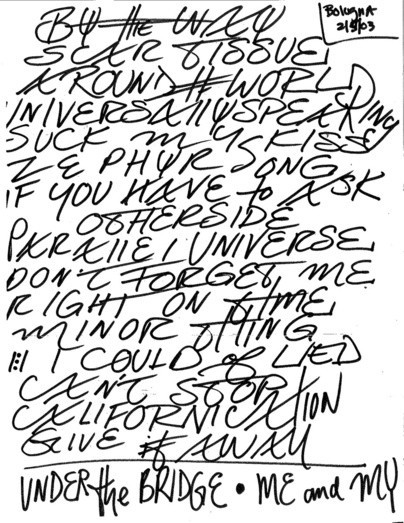 BY the WAY
Bologna
2/5/03
SCAR TISSUE
AROUND th WORLD
UNIVERSAllY SPEAKING
SUCK MY KISS
ZEPHYR SONG
IF YOU HAVE to ASK
OtHERSIDE
PARAllEl UNIVERSE
DON'T FORGET ME
RIGHT ON TIME
MINOR THING
I COULD of LIED
CAN'T STOP
CALIFORNICATION
GIVE it AWAY
UNDER the BRIDGE • ME and MY